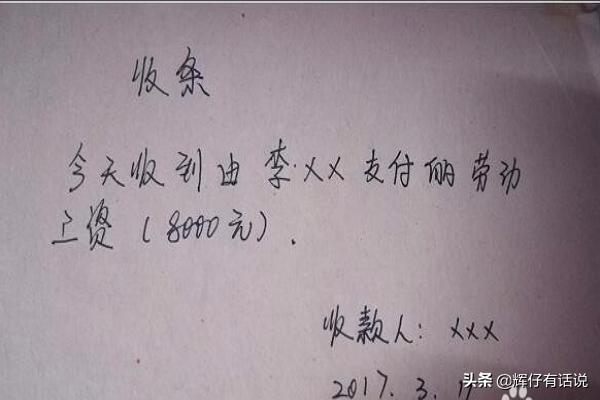 收条
今天收到由李XX支付的劳动
工资(8000元).
收款人: XXX
2017.3.17
头条 @辉仔有话说